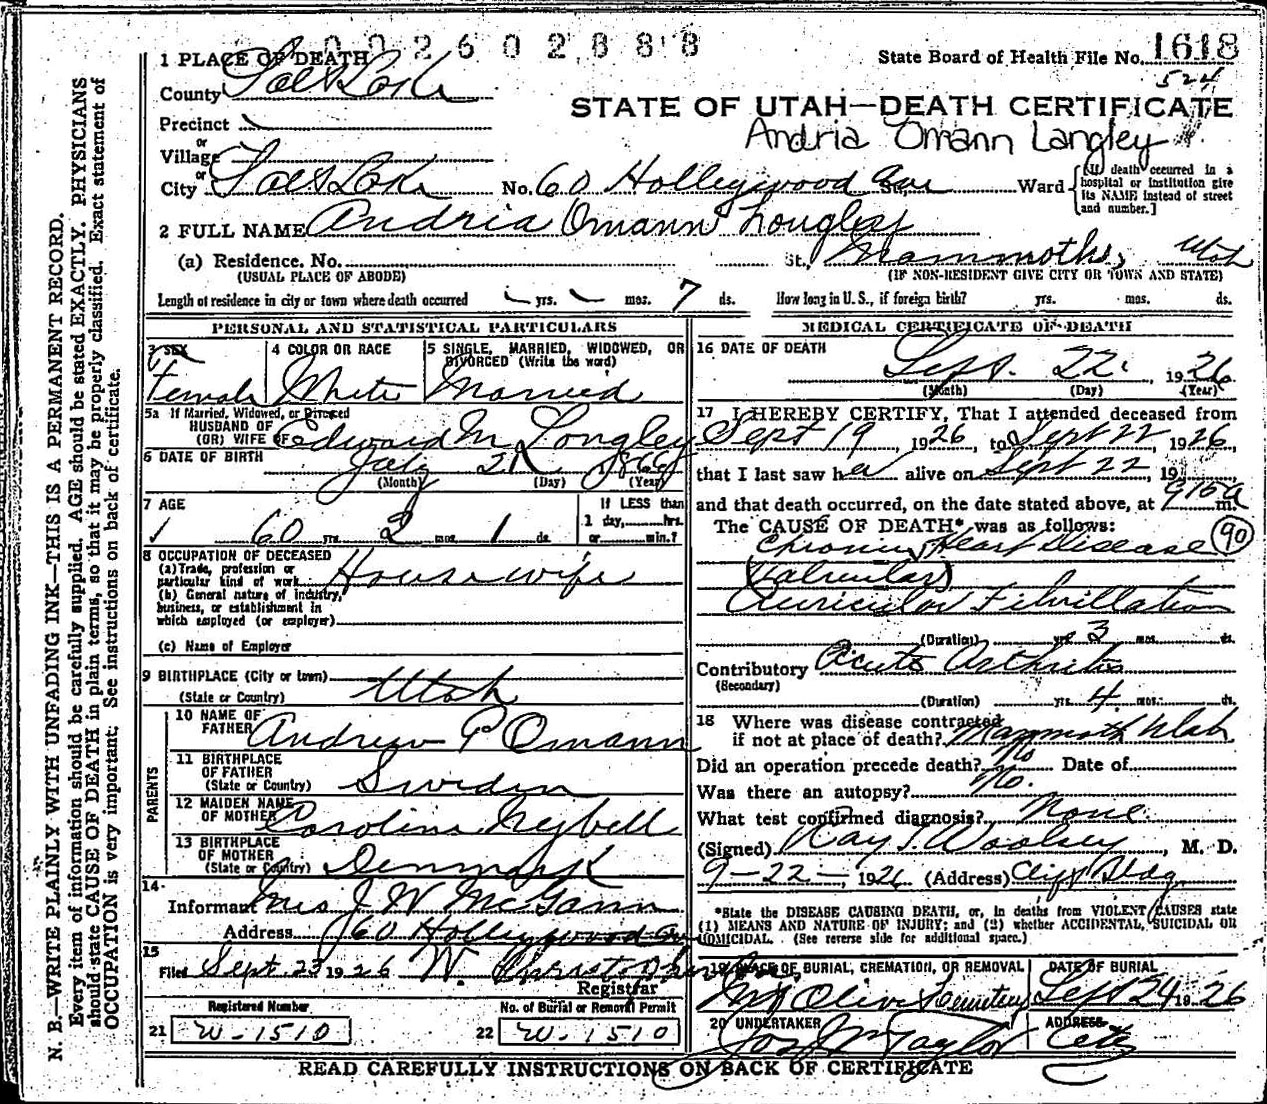 002602888
1 PLACE OF DEATH
State Board of Health File No. 1618
524
County Salt Lake
STATE OF UTAH—DEATH CERTIFICATE
Precinct
Andria Omann Langley
or
Village
or
City Salt Lake No. 60 Hollywood Ave St., Ward
[If death occurred in a hospital or institution give its NAME instead of street and number.]
2 FULL NAME Andria Omann Longley
(a) Residence. No. St., Mammoth, Utah
(USUAL PLACE OF ABODE) (IF NON-RESIDENT GIVE CITY OR TOWN AND STATE)
Length of residence in city or town where death occurred yrs. mos. 7 ds. How long in U. S., if foreign birth? yrs. mos. ds.
PERSONAL AND STATISTICAL PARTICULARS
3 SEX
Female
4 COLOR OR RACE
White
5 SINGLE, MARRIED, WIDOWED, OR DIVORCED (Write the word)
Married
5a If Married, Widowed, or Divorced
HUSBAND OF
(OR) WIFE OF Edward M Longley
6 DATE OF BIRTH July 21 1866
(Month) (Day) (Year)
7 AGE
60 yrs. 2 mos. 1 ds.
If LESS than
1 day, hrs.
or min.?
8 OCCUPATION OF DECEASED
(a) Trade, profession or
particular kind of work Housewife
(b) General nature of industry,
business, or establishment in
which employed (or employer)
(c) Name of Employer
9 BIRTHPLACE (City or town)
(State or Country) Utah
PARENTS
10 NAME OF
FATHER Andrew P Omann
11 BIRTHPLACE
OF FATHER
(State or Country) Sweden
12 MAIDEN NAME
OF MOTHER Carolina
13 BIRTHPLACE
OF MOTHER
(State or Country) Denmark
14
Informant Mrs J W McGann
Address 60 Hollywood Ave
15
Filed Sept 23 1926 W.
Registrar
Registered Number
21 W-1510
No. of Burial or Removal Permit
22 W-1510
MEDICAL CERTIFICATE OF DEATH
16 DATE OF DEATH
Sept. 22. 1926
(Month) (Day) (Year)
17 I HEREBY CERTIFY, That I attended deceased from
Sept 19 1926, to Sept 22 1926,
that I last saw her alive on Sept 22, 19
and that death occurred, on the date stated above, at 915 a m.
The CAUSE OF DEATH* was as follows:
Chronic Heart Disease 90
(Valvular)
Auricular Fibrillation
(Duration) yrs. 3 mos. ds.
Contributory Acute Arthritis
(Secondary)
(Duration) yrs. 4 mos. ds.
18 Where was disease contracted
if not at place of death? Mammoth Utah
Did an operation precede death? No Date of
Was there an autopsy? No.
What test confirmed diagnosis? None.
(Signed) Ray T. Woolsey, M. D.
9-22-, 1926 (Address) Clift Bldg
*State the DISEASE CAUSING DEATH, or, in deaths from VIOLENT CAUSES state
(1) MEANS AND NATURE OF INJURY; and (2) whether ACCIDENTAL, SUICIDAL OR
HOMICIDAL. (See reverse side for additional space.)
19 PLACE OF BURIAL, CREMATION, OR REMOVAL
Mt Olivet Cemetery
DATE OF BURIAL
Sept 24 1926
20 UNDERTAKER
Jos Wm Taylor
ADDRESS
City
READ CAREFULLY INSTRUCTIONS ON BACK OF CERTIFICATE
N. B.—WRITE PLAINLY WITH UNFADING INK—THIS IS A PERMANENT RECORD.
Every item of information should be carefully supplied. AGE should be stated EXACTLY. PHYSICIANS
should state CAUSE OF DEATH in plain terms, so that it may be properly classified. Exact statement of
OCCUPATION is very important: See instructions on back of certificate.